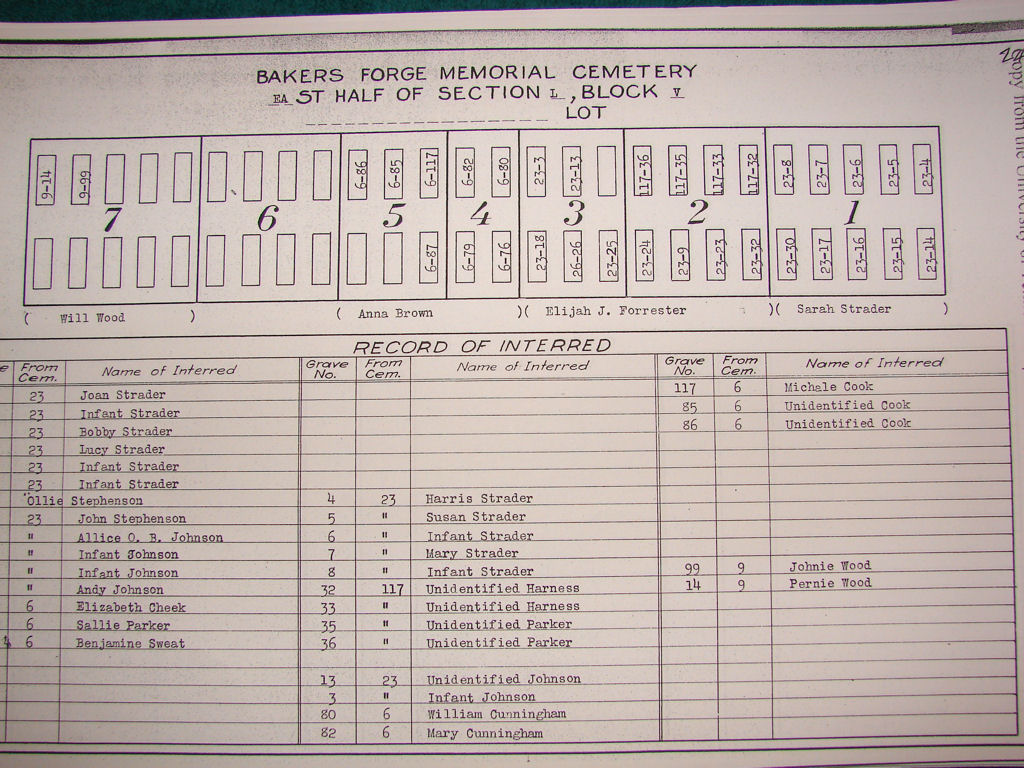 BAKERS FORGE MEMORIAL CEMETERY
EAST HALF OF SECTION L, BLOCK V
LOT
9-14 9-99 6-86 6-85 6-117 6-82 6-80 23-3 23-13 117-36 117-35 117-33 117-32 23-8 23-7 23-6 23-5 23-4
7 6 5 4 3 2 1
6-87 6-79 6-76 23-18 26-26 23-25 23-24 23-9 23-23 23-32 23-30 23-17 23-16 23-15 23-14
( Will Wood ) ( Anna Brown )( Elijah J. Forrester )( Sarah Strader )
RECORD OF INTERRED
e From Cem. Name of Interred Grave No. From Cem. Name of Interred Grave No. From Cem. Name of Interred
23 Joan Strader 117 6 Michale Cook
23 Infant Strader 85 6 Unidentified Cook
23 Bobby Strader 86 6 Unidentified Cook
23 Lucy Strader
23 Infant Strader
23 Infant Strader
" Ollie Stephenson 4 23 Harris Strader
23 John Stephenson 5 " Susan Strader
" Allice O. B. Johnson 6 " Infant Strader
" Infant Johnson 7 " Mary Strader
" Infant Johnson 8 " Infant Strader 99 9 Johnie Wood
" Andy Johnson 32 117 Unidentified Harness 14 9 Pernie Wood
6 Elizabeth Cheek 33 " Unidentified Harness
6 Sallie Parker 35 " Unidentified Parker
6 Benjamine Sweat 36 " Unidentified Parker
13 23 Unidentified Johnson
3 " Infant Johnson
80 6 William Cunningham
82 6 Mary Cunningham